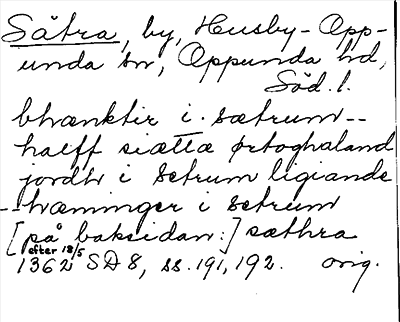 Sätra, by, Husby-Opp-
unda sn, Oppunda hd,
Söd. l.
bhænktir i. sætrum --
halff siætta ørtoghaland
jordh i setrum ligiande
-- hæminger i setrum
[på baksidan:] sæthra
efter 18/5
1362 SD 8, ss. 191, 192. orig.